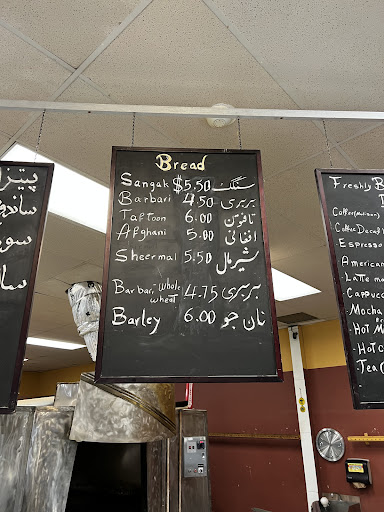 پیتزا
ساندویچ
سو
سا
Bread
Sangak $5.50 سنگک
Barbari 4.50 بربری
Taftoon 6.00 تافتون
Afghani 5.00 افغانی
Sheermal 5.50 شیرمال
Barbari whole wheat 4.75 بربری
Barley 6.00 نان جو
Freshly B
Coffee
Coffee Decaf
Espresso
American
Latte
Cappucc
Mocha
Hot C
Hot M
Tea